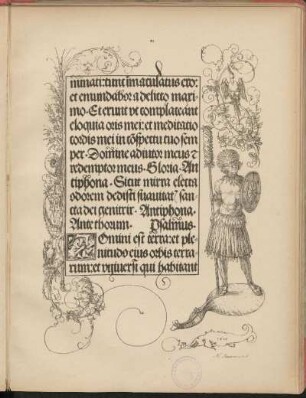 minati: tunc immaculatus ero:
et emundabor a delicto maxi
mo. Et erunt vt complaceant
eloquia oris mei: et meditatio
cordis mei in cōspectu tuo sem
per. Domine adiutor meus ⁊
redemptor meus. Gloria. An
tiphona. Sicut mirra electa
odorem dedisti suauitat⁊ san
cta dei genitrix. Antiphona.
Ante thorum. Psalmus.
Domini est terra: et ple
nitudo eius orbis terra
rum: et vniuersi qui habitant
5